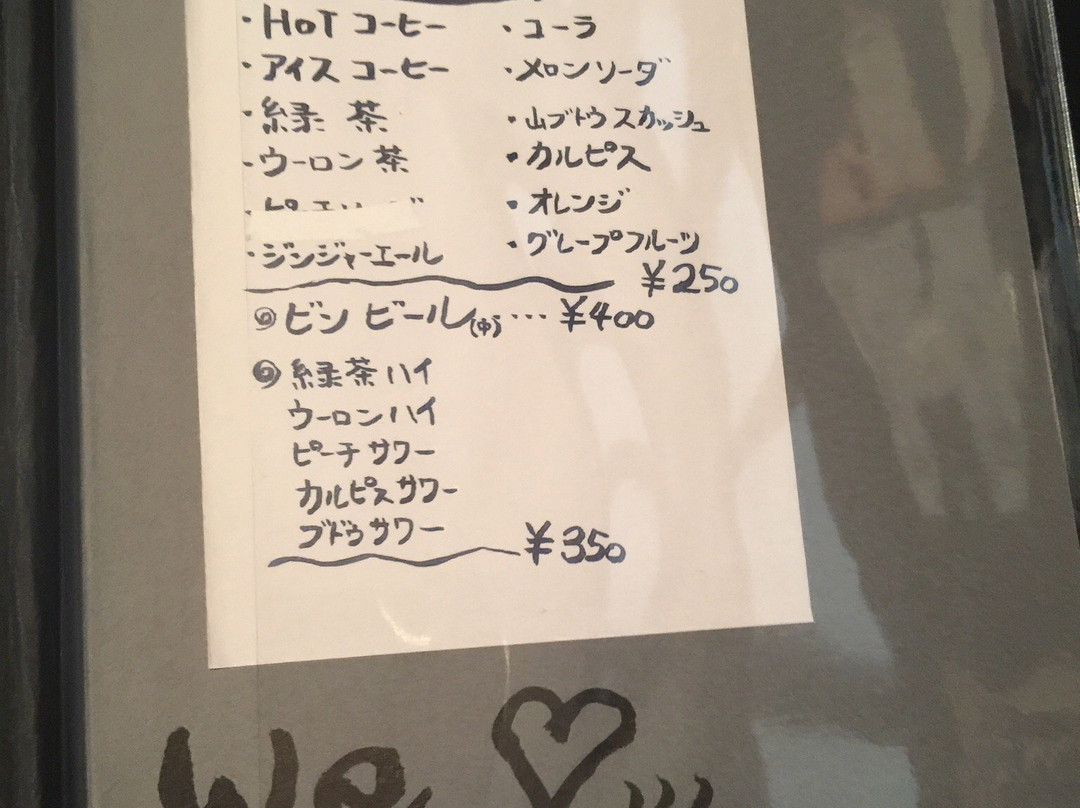 ・HoT コーヒー ・コーラ
・アイス コーヒー ・メロンソーダ
・緑 茶 ・山ブドウスカッシュ
・ウーロン茶 ・カルピス
・オレンジ
・ジンジャーエール ・グレープフルーツ
¥250
◎ビン ビール(中)…¥400
◎緑茶ハイ
ウーロンハイ
ピーチサワー
カルピスサワー
ブドウサワー ¥350
We ♡